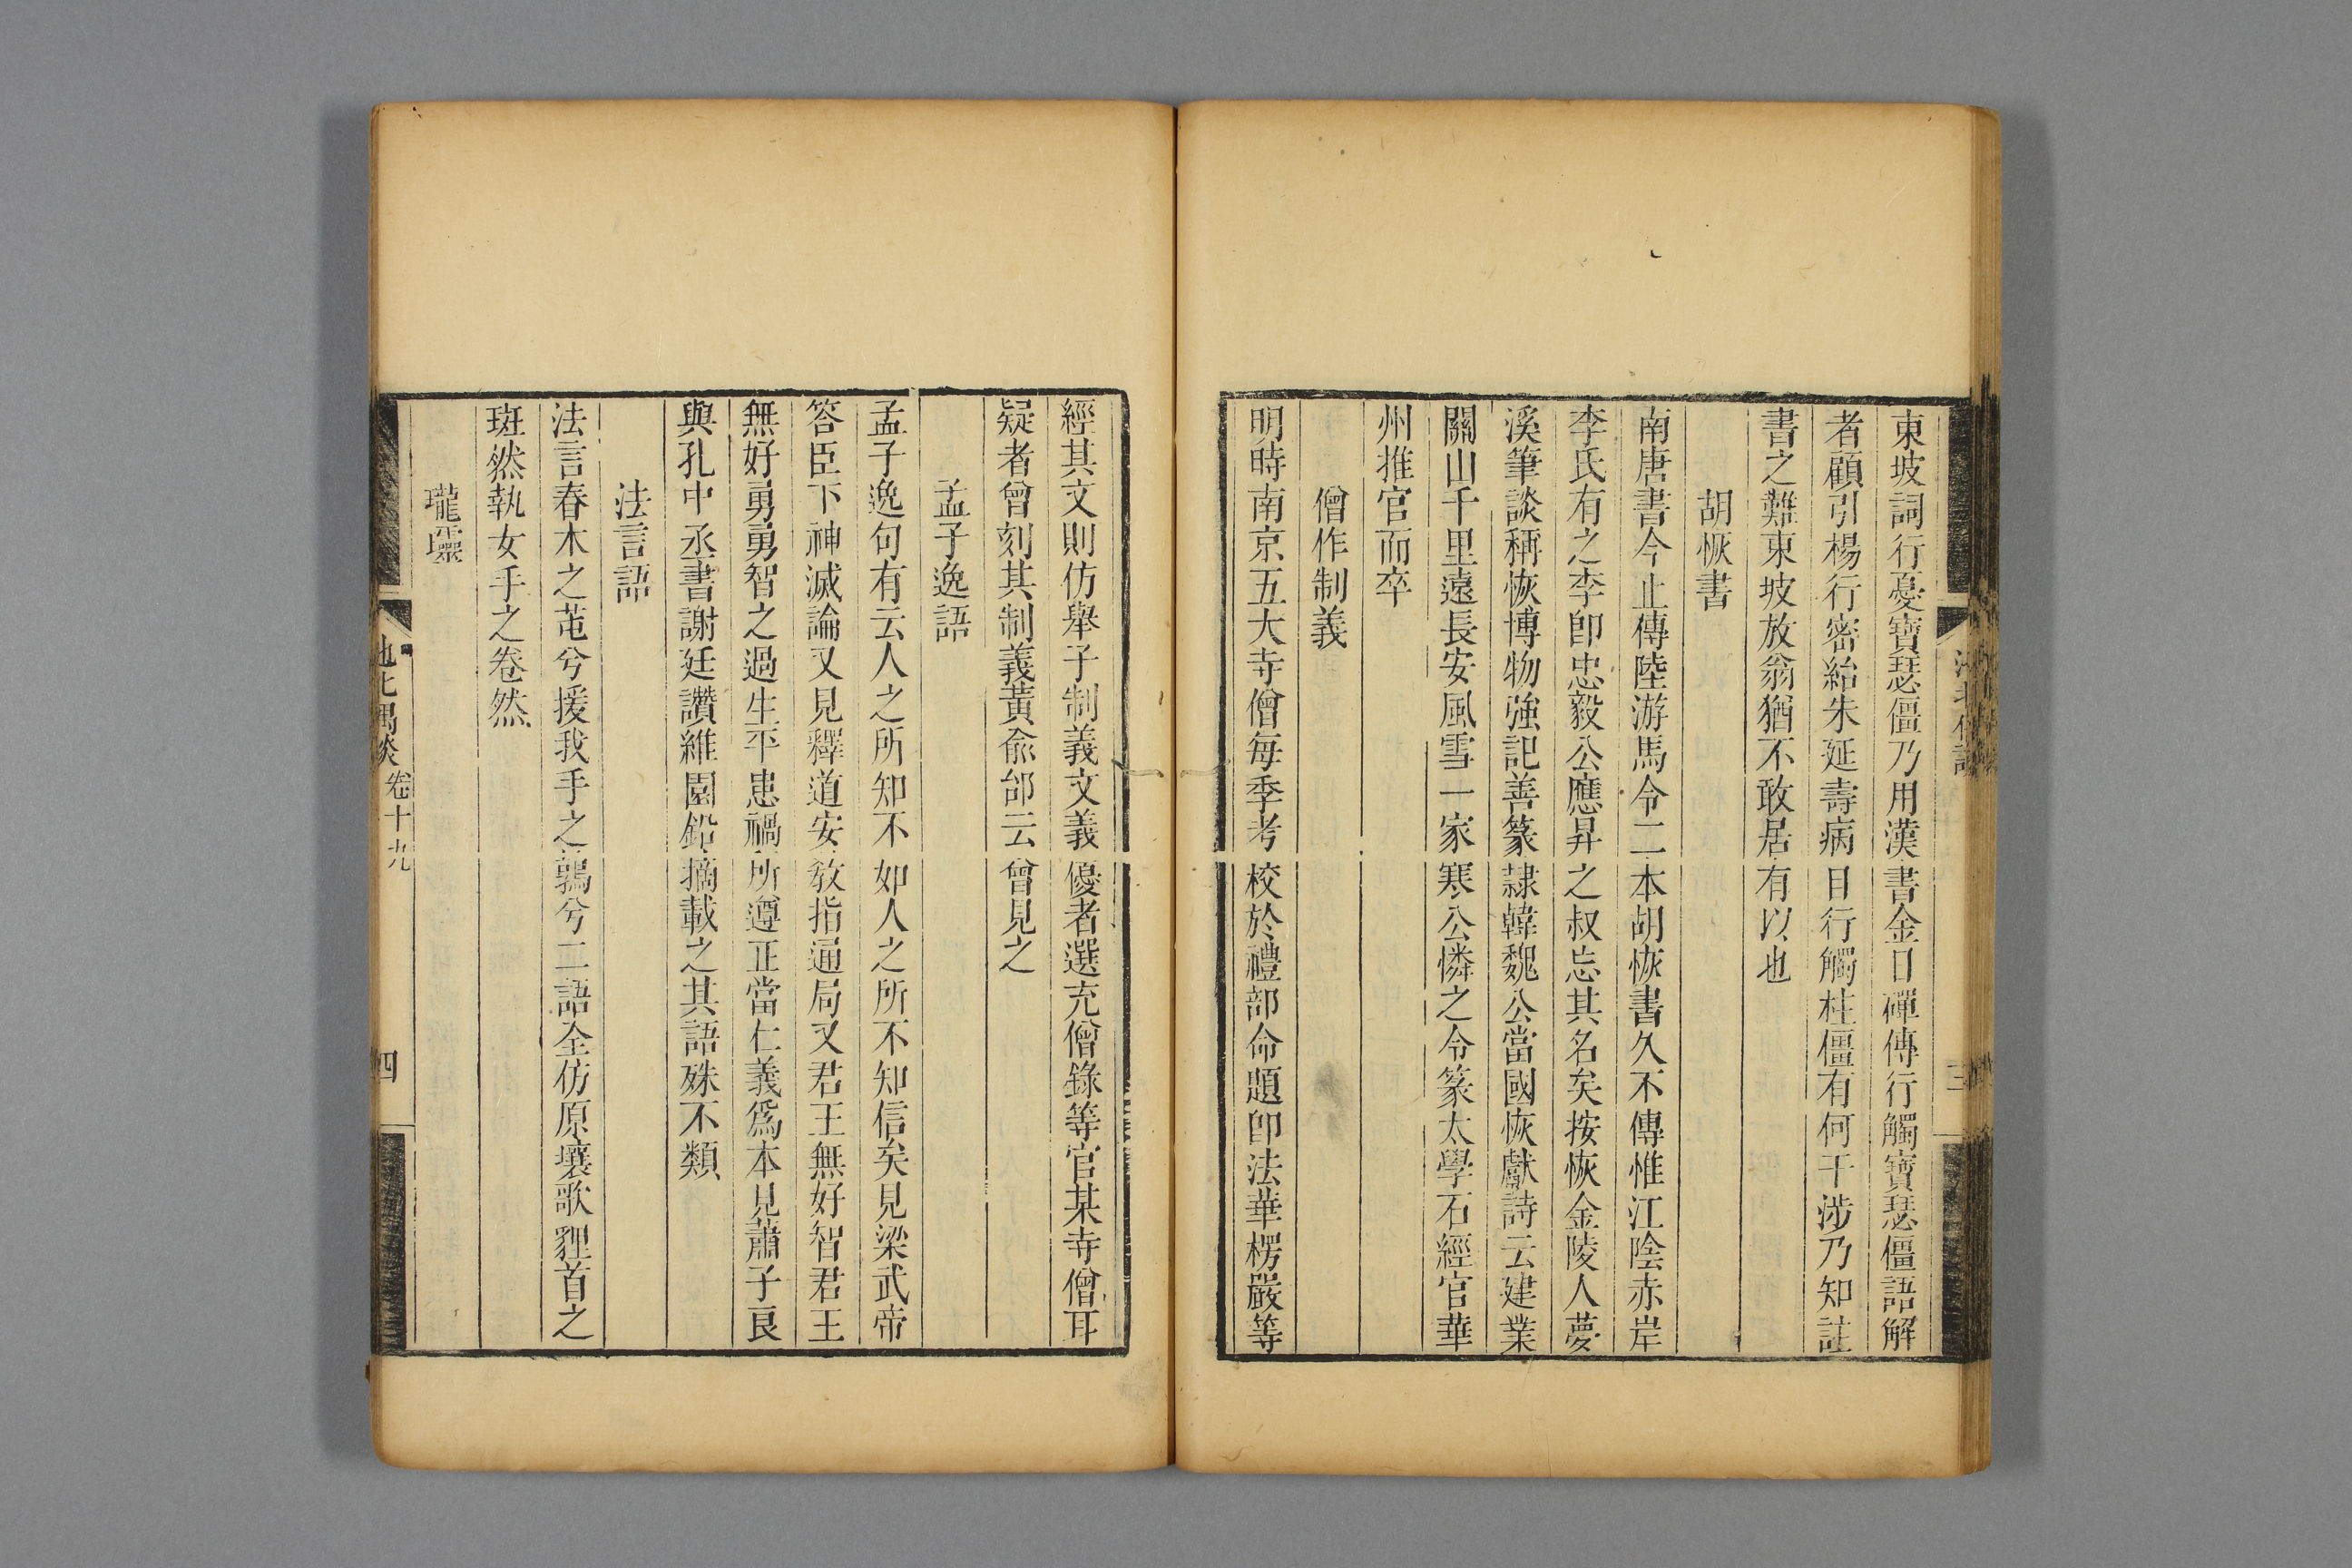 東坡詞行憂寶瑟僵乃用漢書金日磾傳行觸寶瑟僵語解
者顧引楊行密紿朱延壽病目行觸柱僵有何干涉乃知註
書之難東坡放翁猶不敢居有以也
胡恢書
南唐書今止傳陸游馬令二本胡恢書久不傳惟江陰赤岸
李氏有之李卽忠毅公應昇之叔忘其名矣按恢金陵人夢
溪筆談稱恢博物強記善篆隷韓魏公當國恢獻詩云建業
關山千里遠長安風雪一家寒公憐之令篆太學石經官華
州推官而卒
僧作制義
明時南京五大寺僧每季考校於禮部命題卽法華楞嚴等
經其文則仿舉子制義文義優者選充僧錄等官某寺僧耳
疑者曾刻其制義黃兪邰云曾見之
孟子逸語
孟子逸句有云人之所知不如人之所不知信矣見梁武帝
答臣下神滅論又見釋道安敎指通局又君王無好智君王
無好勇勇智之過生平患禍所遵正當仁義爲本見蕭子良
與孔中丞書謝廷讚維園鉛摘載之其語殊不類
法言語
法言春木之芚兮援我手之鶉兮二語全仿原壤歌貍首之
斑然執女手之卷然
瓏靈
池北偶談 卷十九 四